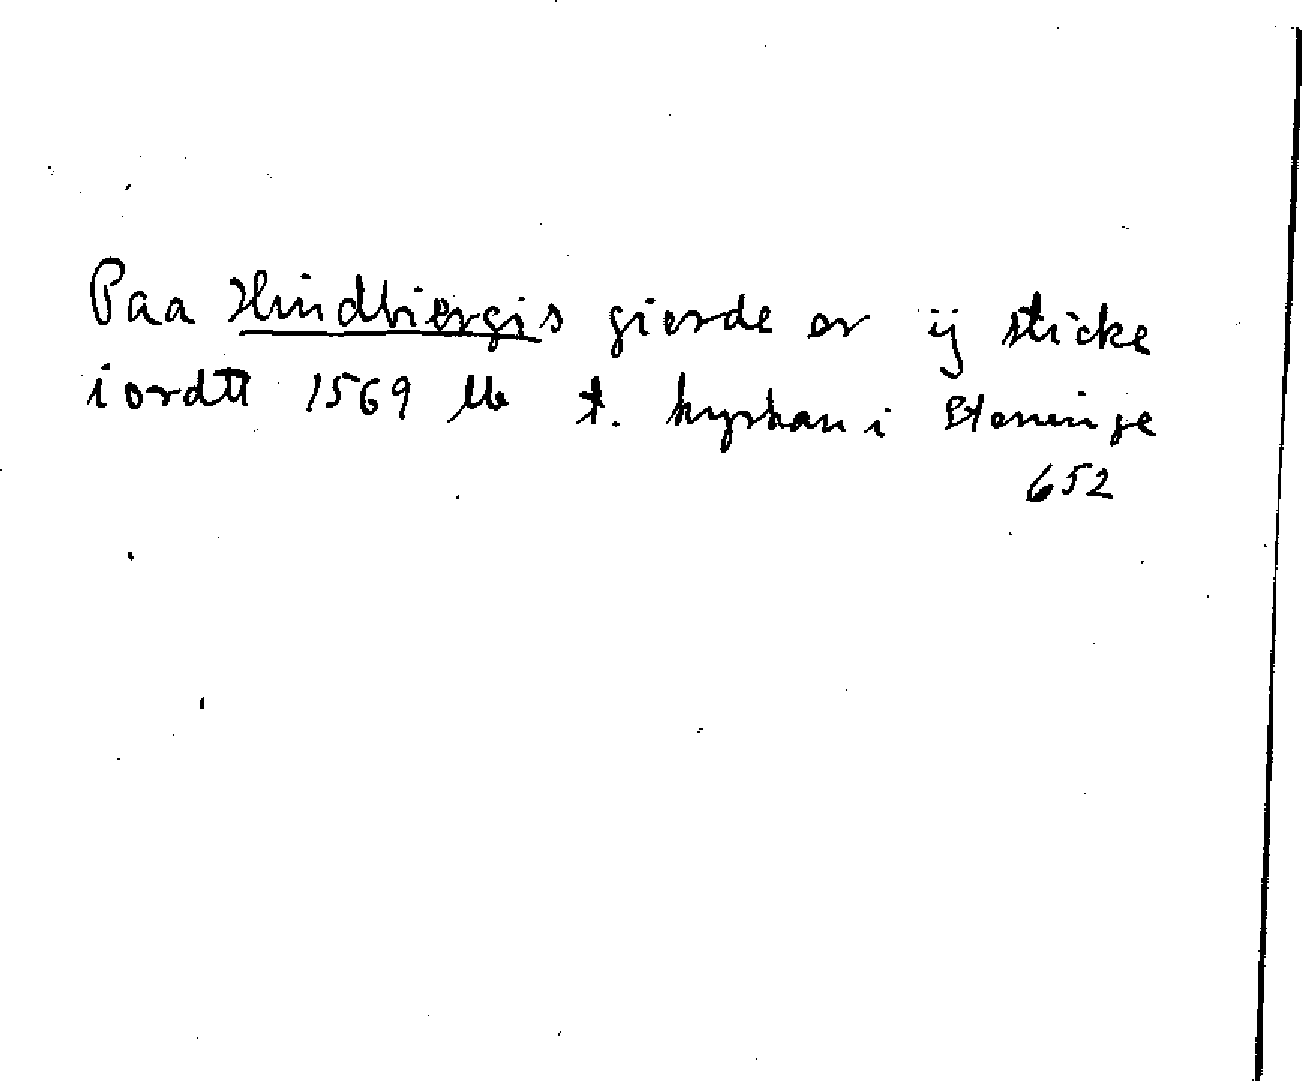 Paa Hindbiergis gierde er ij sticke
iordtt 1569 Mb t. kyrkan i Steninge
652